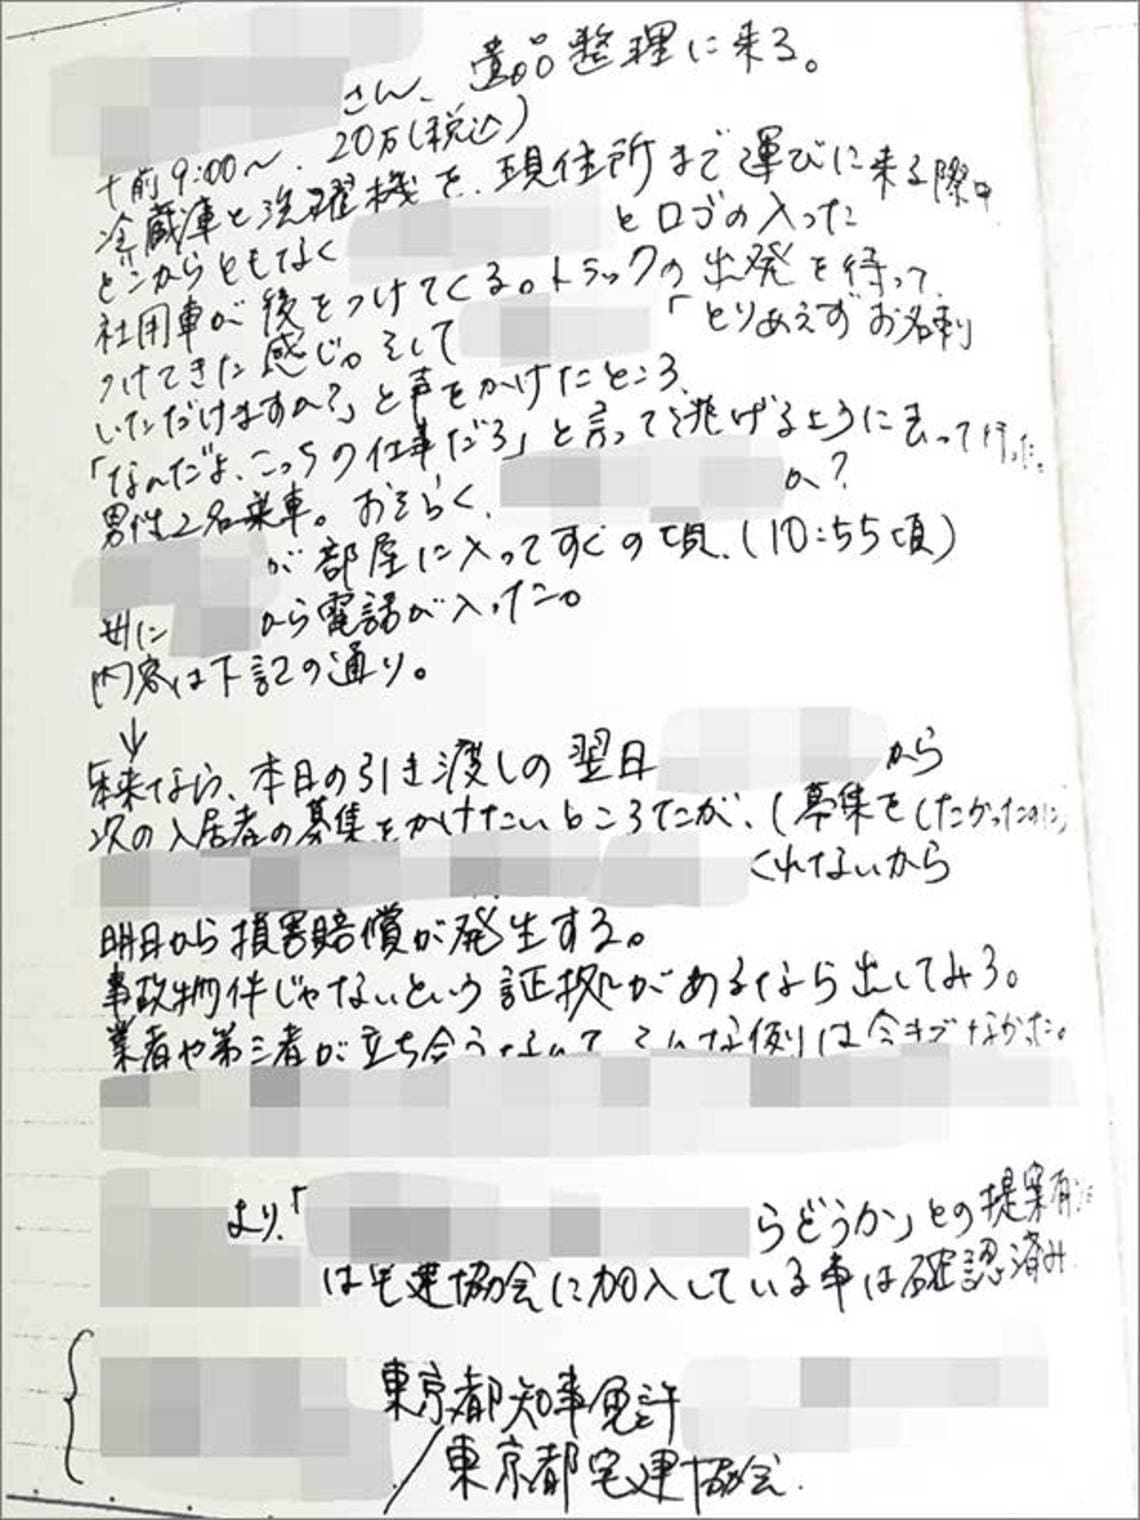 さん、遺品整理に来る。
午前9:00〜、20万(税込)
冷蔵庫と洗濯機を、現住所まで運びに来る際中
どこからともなく とロゴの入った
社用車が後をつけてくる。トラックの出発を待って、
つけてきた感じ。そして 「とりあえずお名刺
いただけますか?」と声をかけたところ、
「なんだよ、こっちの仕事だろ」と言って逃げるように去って行った。
男性2名乗車。おそらく、 か?
が部屋に入ってすぐの頃、(10:55頃)
母に から電話が入った。
内容は下記の通り。
↓
「本来なら、本日の引き渡しの翌日 から
次の入居者の募集をかけたいところだが、(募集をしたかったのに)
くれないから
明日から損害賠償が発生する。
事故物件じゃないという証拠があるなら出してみろ。
業者や第三者が立ち合うなんて、そんな例は今までなかった。
より、「 らどうか」との提案有り
は宅建協会に加入している事は確認済み
東京都知事免許
/東京都宅建協会.